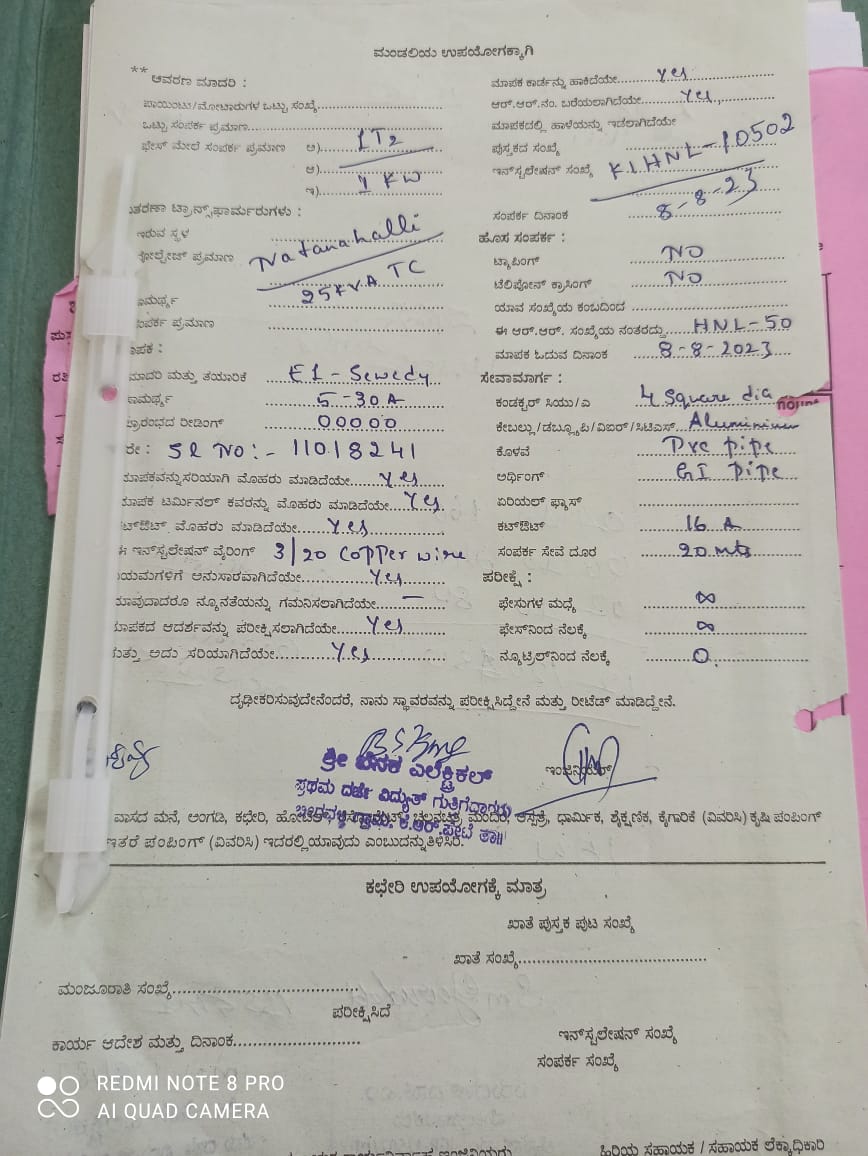 ಮಂಡಲಿಯ ಉಪಯೋಗಕ್ಕಾಗಿ
** ಆವರಣ ಮಾದರಿ :
ಪಾಯಿಂಟು/ಮೋಟಾರುಗಳ ಒಟ್ಟು ಸಂಖ್ಯೆ
ಒಟ್ಟು ಸಂಪರ್ಕ ಪ್ರಮಾಣ
ಫೇಸ್ ಮೇಲೆ ಸಂಪರ್ಕ ಪ್ರಮಾಣ ಅ) LT2
ಆ)
ಇ) 1 KW
ತರಣಾ ಟ್ರಾನ್ಸ್‌ಫಾರ್ಮರುಗಳು :
ಇರುವ ಸ್ಥಳ Natanahalli
ವೋಲ್ಟೇಜ್ ಪ್ರಮಾಣ
ಾಮರ್ಥ್ಯ 25 KVA TC
ಸಂಪರ್ಕ ಪ್ರಮಾಣ
ಾಪಕ :
ಮಾದರಿ ಮತ್ತು ತಯಾರಿಕೆ EL - Sewedy
ಾಮರ್ಥ್ಯ 5-30A
ಪ್ರಾರಂಭದ ರೀಡಿಂಗ್ 00000
ರೇ : Sl No :- 11018241
ಮಾಪಕವನ್ನು ಸರಿಯಾಗಿ ಮೊಹರು ಮಾಡಿದೆಯೇ Yes
ಮಾಪಕ ಟರ್ಮಿನಲ್ ಕವರನ್ನು ಮೊಹರು ಮಾಡಿದೆಯೇ Yes
ಕಟ್‌ಔಟ್ ಮೊಹರು ಮಾಡಿದೆಯೇ Yes
ಈ ಇನ್‌ಸ್ಟಲೇಷನ್ ವೈರಿಂಗ್ 3/20 Copper wire
ಯಮಗಳಿಗೆ ಅನುಸಾರವಾಗಿದೆಯೇ Yes
ಯಾವುದಾದರೂ ನ್ಯೂನತೆಯನ್ನು ಗಮನಿಸಲಾಗಿದೆಯೇ —
ಮಾಪಕದ ಆದರ್ಶವನ್ನು ಪರೀಕ್ಷಿಸಲಾಗಿದೆಯೇ Yes
ಮತ್ತು ಅದು ಸರಿಯಾಗಿದೆಯೇ Yes
ಮಾಪಕ ಕಾರ್ಡನ್ನು ಹಾಕಿದೆಯೇ Yes
ಆರ್.ಆರ್.ನಂ. ಬರೆಯಲಾಗಿದೆಯೇ Yes
ಮಾಪಕದಲ್ಲಿ ಹಾಳೆಯನ್ನು ಇಡಲಾಗಿದೆಯೇ
ಪುಸ್ತಕದ ಸಂಖ್ಯೆ
ಇನ್‌ಸ್ಟಲೇಷನ್ ಸಂಖ್ಯೆ KLHNL-10502
ಸಂಪರ್ಕ ದಿನಾಂಕ 8-8-23
ಹೊಸ ಸಂಪರ್ಕ :
ಟ್ಯಾಪಿಂಗ್ NO
ಟೆಲಿಫೋನ್ ಕ್ರಾಸಿಂಗ್ NO
ಯಾವ ಸಂಖ್ಯೆಯ ಕಂಬದಿಂದ
ಈ ಆರ್.ಆರ್. ಸಂಖ್ಯೆಯ ನಂತರದ್ದು HNL-50
ಮಾಪಕ ಓದುವ ದಿನಾಂಕ 8-8-2023
ಸೇವಾಮಾರ್ಗ :
ಕಂಡಕ್ಟರ್ ಸಿಯು/ಎ 4 Square dia
ಕೇಬಲ್ಲು/ಡಬ್ಲ್ಯೂಪಿ/ವಿಐರ್/ಸಿಟಿಎಸ್ Aluminium
ಕೊಳವೆ Pvc pipe
ಅರ್ಥಿಂಗ್ GI Pipe
ಏರಿಯಲ್ ಫ್ಯೂಸ್
ಕಟ್‌ಔಟ್ 16 A
ಸಂಪರ್ಕ ಸೇವೆ ದೂರ 20 mts
ಪರೀಕ್ಷೆ :
ಫೇಸುಗಳ ಮಧ್ಯೆ ∞
ಫೇಸ್‌ನಿಂದ ನೆಲಕ್ಕೆ ∞
ನ್ಯೂಟ್ರಲ್‌ನಿಂದ ನೆಲಕ್ಕೆ 0
ದೃಢೀಕರಿಸುವುದೇನೆಂದರೆ, ನಾನು ಸ್ಥಾವರವನ್ನು ಪರೀಕ್ಷಿಸಿದ್ದೇನೆ ಮತ್ತು ರೀಟೆಡ್ ಮಾಡಿದ್ದೇನೆ.
ಶ್ರೀ ಬೆನಕ ಎಲೆಕ್ಟ್ರಿಕಲ್
ಇಂಜಿನಿಯರ್
ಪ್ರಥಮ ದರ್ಜೆ ವಿದ್ಯುತ್ ಗುತ್ತಿಗೆದಾರರು
ಕೆ.ಆರ್.ಪೇಟೆ ತಾ||
ವಾಸದ ಮನೆ, ಅಂಗಡಿ, ಕಛೇರಿ, ಚಲನಚಿತ್ರ ಮಂದಿರ, ಆಸ್ಪತ್ರೆ, ಧಾರ್ಮಿಕ, ಶೈಕ್ಷಣಿಕ, ಕೈಗಾರಿಕೆ (ವಿವರಿಸಿ) ಕೃಷಿ ಪಂಪಿಂಗ್
ಇತರೆ ಪಂಪಿಂಗ್ (ವಿವರಿಸಿ) ಇದರಲ್ಲಿ ಯಾವುದು ಎಂಬುದನ್ನು ತಿಳಿಸಿರಿ.
ಕಛೇರಿ ಉಪಯೋಗಕ್ಕೆ ಮಾತ್ರ
ಖಾತೆ ಪುಸ್ತಕ ಪುಟ ಸಂಖ್ಯೆ
ಖಾತೆ ಸಂಖ್ಯೆ
ಮಂಜೂರಾತಿ ಸಂಖ್ಯೆ
ಪರೀಕ್ಷಿಸಿದೆ
ಕಾರ್ಯ ಆದೇಶ ಮತ್ತು ದಿನಾಂಕ
ಇನ್‌ಸ್ಟಲೇಷನ್ ಸಂಖ್ಯೆ
ಸಂಪರ್ಕ ಸಂಖ್ಯೆ
REDMI NOTE 8 PRO
AI QUAD CAMERA
ಹಿರಿಯ ಸಹಾಯಕ / ಸಹಾಯಕ ಲೆಕ್ಕಾಧಿಕಾರಿ